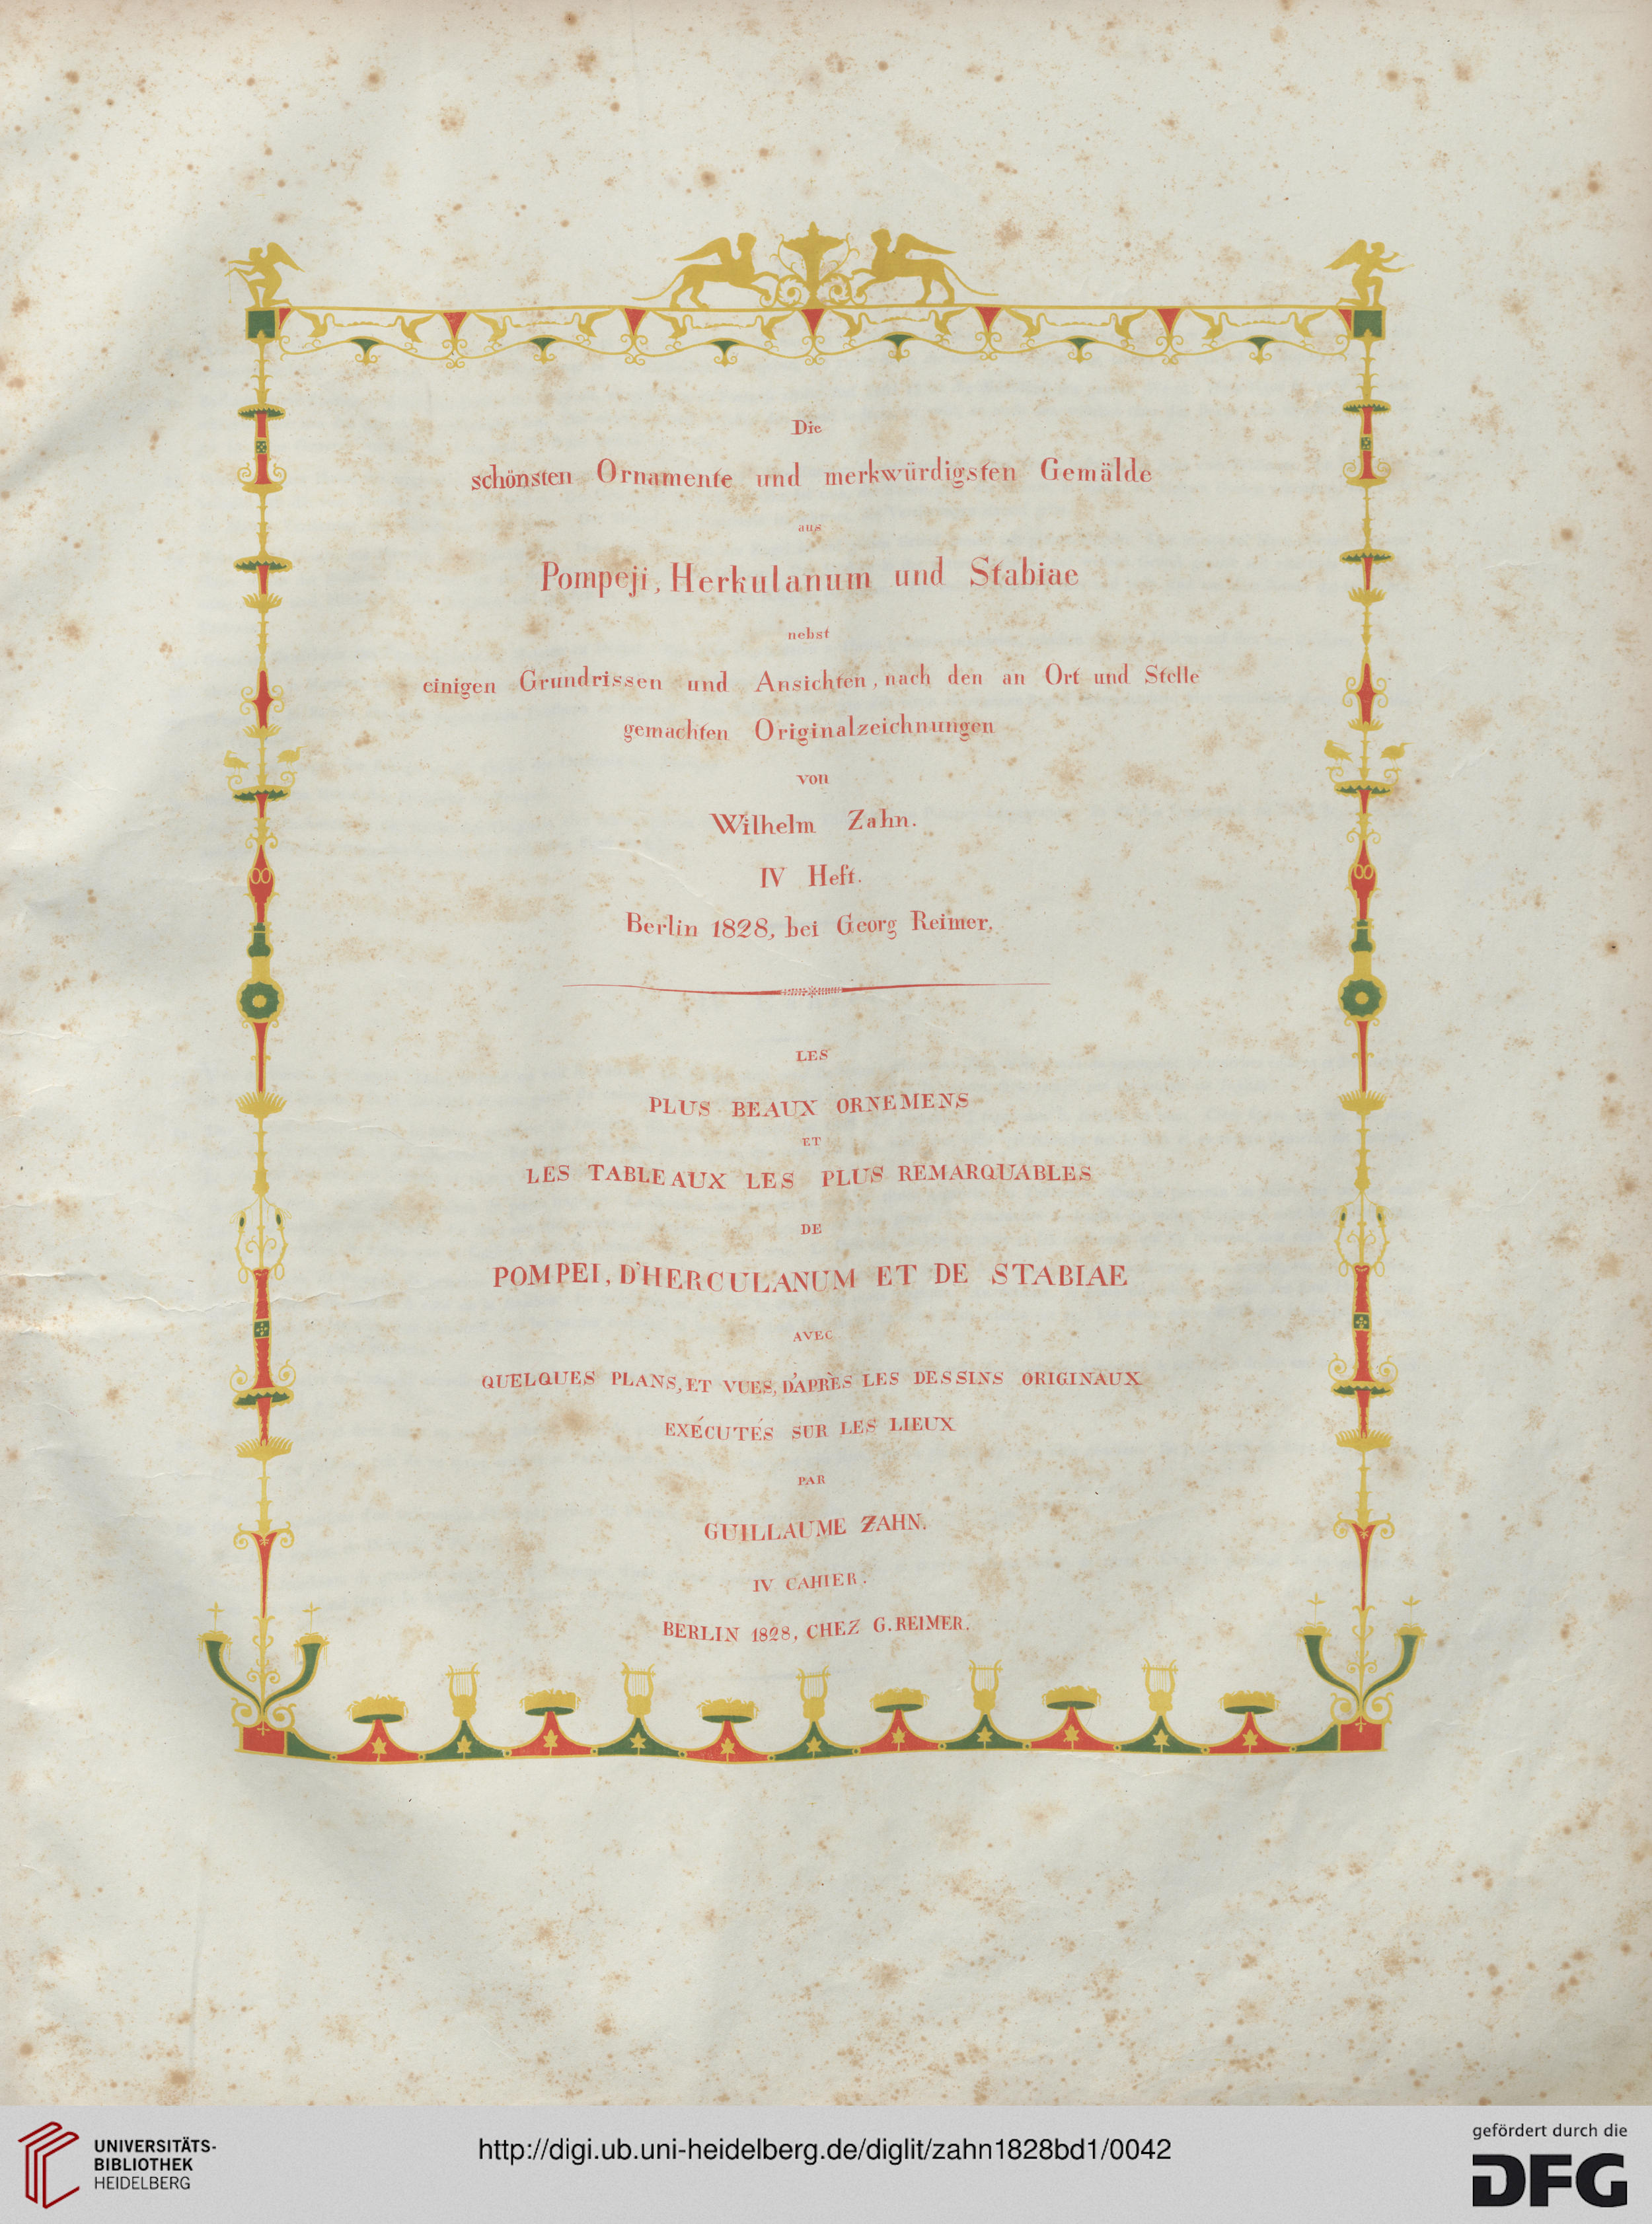 Die
schönsten Ornamente und merkwürdigsten Gemälde
aus
Pompeji, Herkulanum und Stabiae
nebst
einigen Grundrissen und Ansichten, nach den an Ort und Stelle
gemachten Originalzeichnungen
von
Wilhelm Zahn.
IV Heft.
Berlin 1828, bei Georg Reimer.
LES
PLUS BEAUX ORNEMENS
ET
LES TABLEAUX LES PLUS REMARQUABLES
DE
POMPEI, D'HERCULANUM ET DE STABIAE
AVEC
QUELQUES PLANS, ET VUES, D'APRÈS LES DESSINS ORIGINAUX
EXÉCUTÉS SUR LES LIEUX
PAR
GUILLAUME ZAHN.
IV CAHIER.
BERLIN 1828, CHEZ G. REIMER.
UNIVERSITÄTS-
BIBLIOTHEK
HEIDELBERG
http://digi.ub.uni-heidelberg.de/diglit/zahn1828bd1/0042
gefördert durch die
DFG